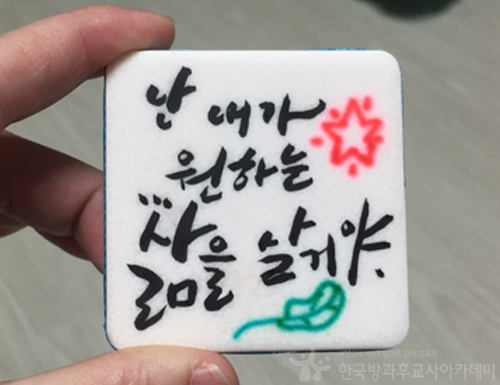 난 내가
원하는
삶을 살거야.
한국방과후교사아카데미